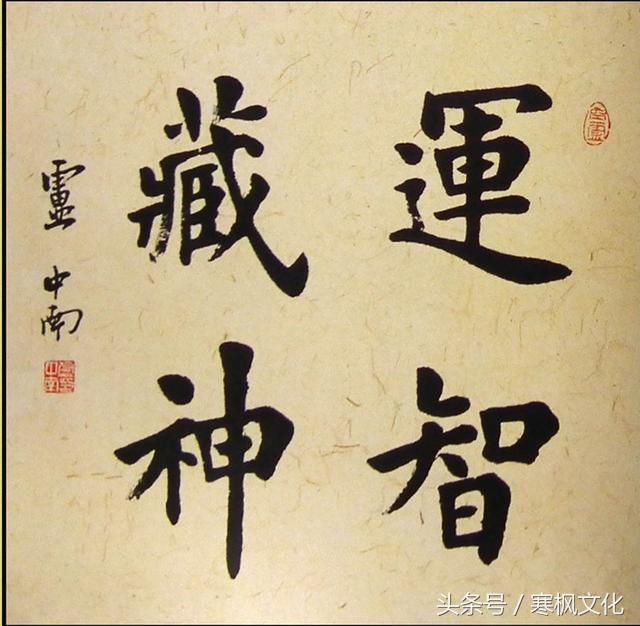 運智
藏神
盧中南
头条号 / 寒枫文化